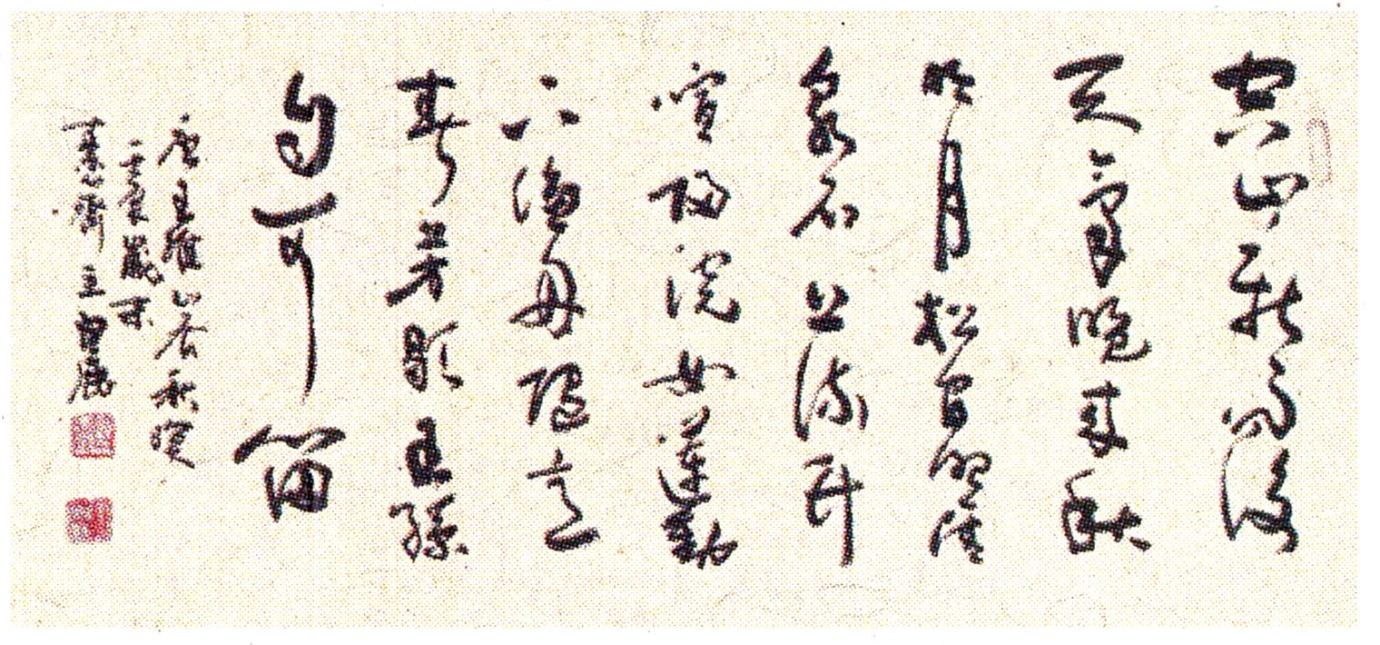 空山新雨後
天氣晚來秋
明月松間照清
泉石上流竹
喧歸浣女蓮動
下漁舟隨意
春芳歇王孫
自可留
唐王維山居秋暝
歲末
齋主